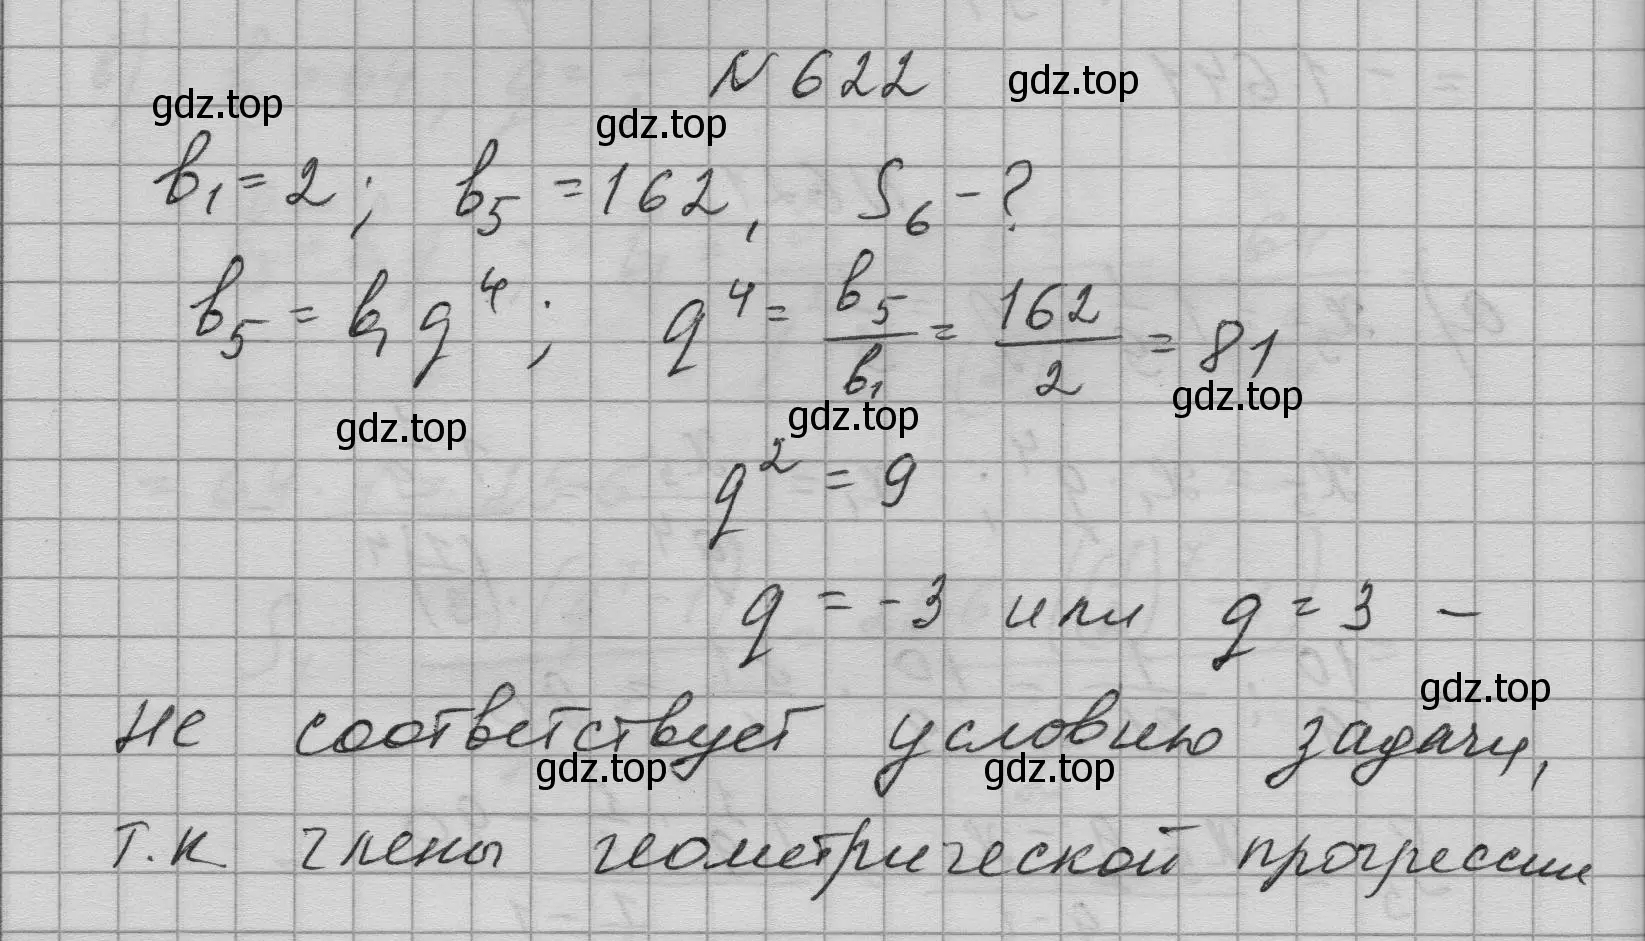 N 622
gdz.top gdz.top gdz.top
b₁ = 2; b₅ = 162, S₆ - ?
b₅ = b₁q⁴; q⁴ = b₅/b₁ = 162/2 = 81
gdz.top gdz.top gdz.top
q² = 9
q = -3 или q = 3 -
gdz.top
не соответствует условию задачи,
gdz.top gdz.top
т.к члены геометрической прогрессии